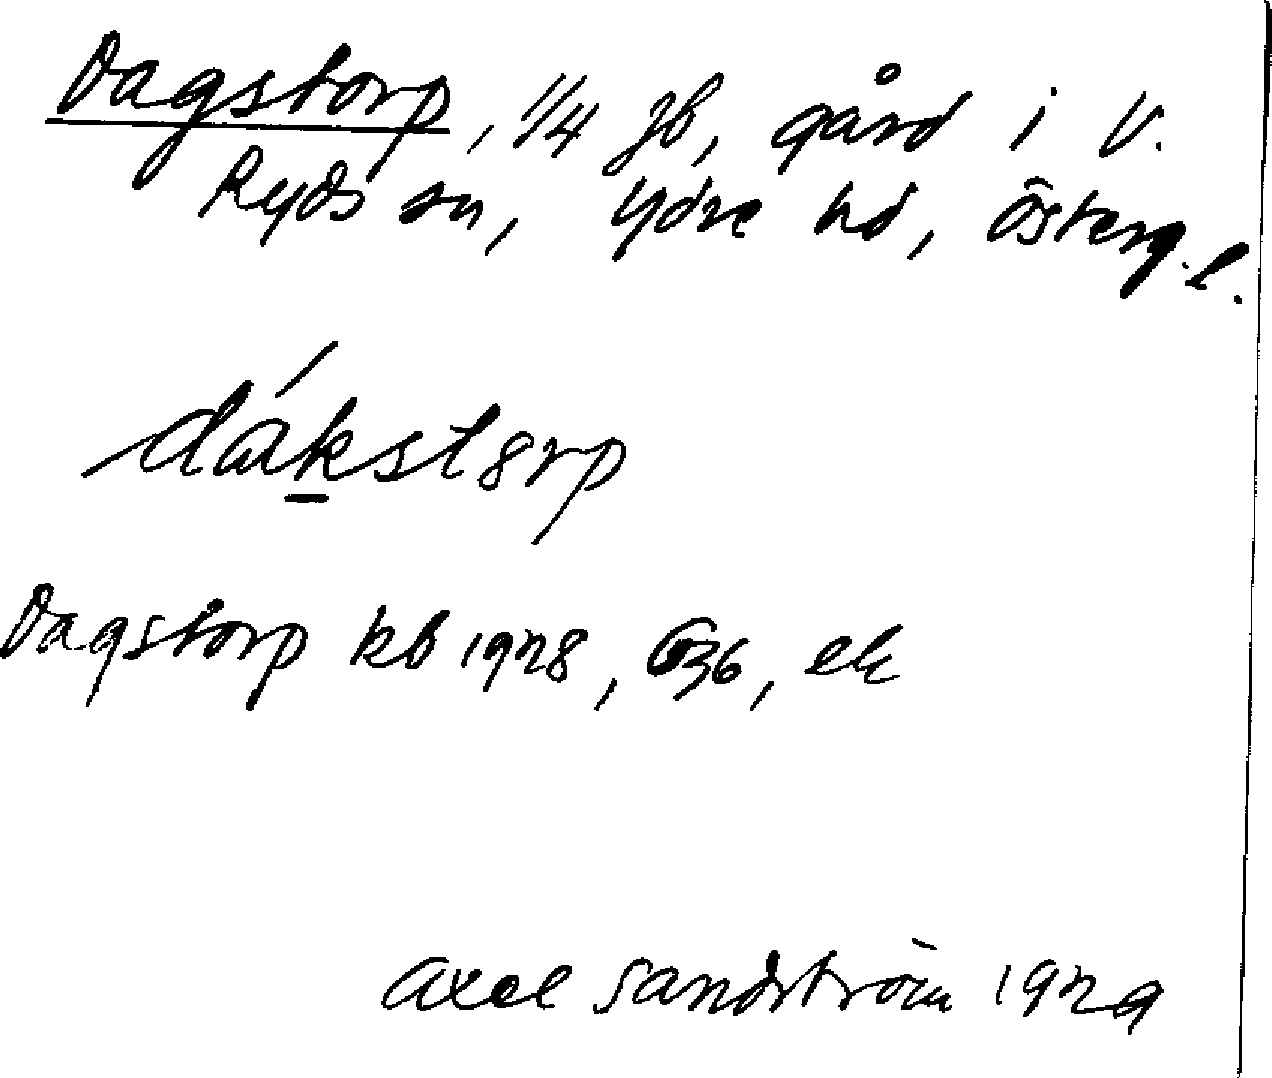 Dagstorp, 1/4 jb, gård i V.
Ryds sn, Ydre hd, Österg. l.
dákstorp
Dagstorp kb 1928, G36, ek
Axel Sandström 1929